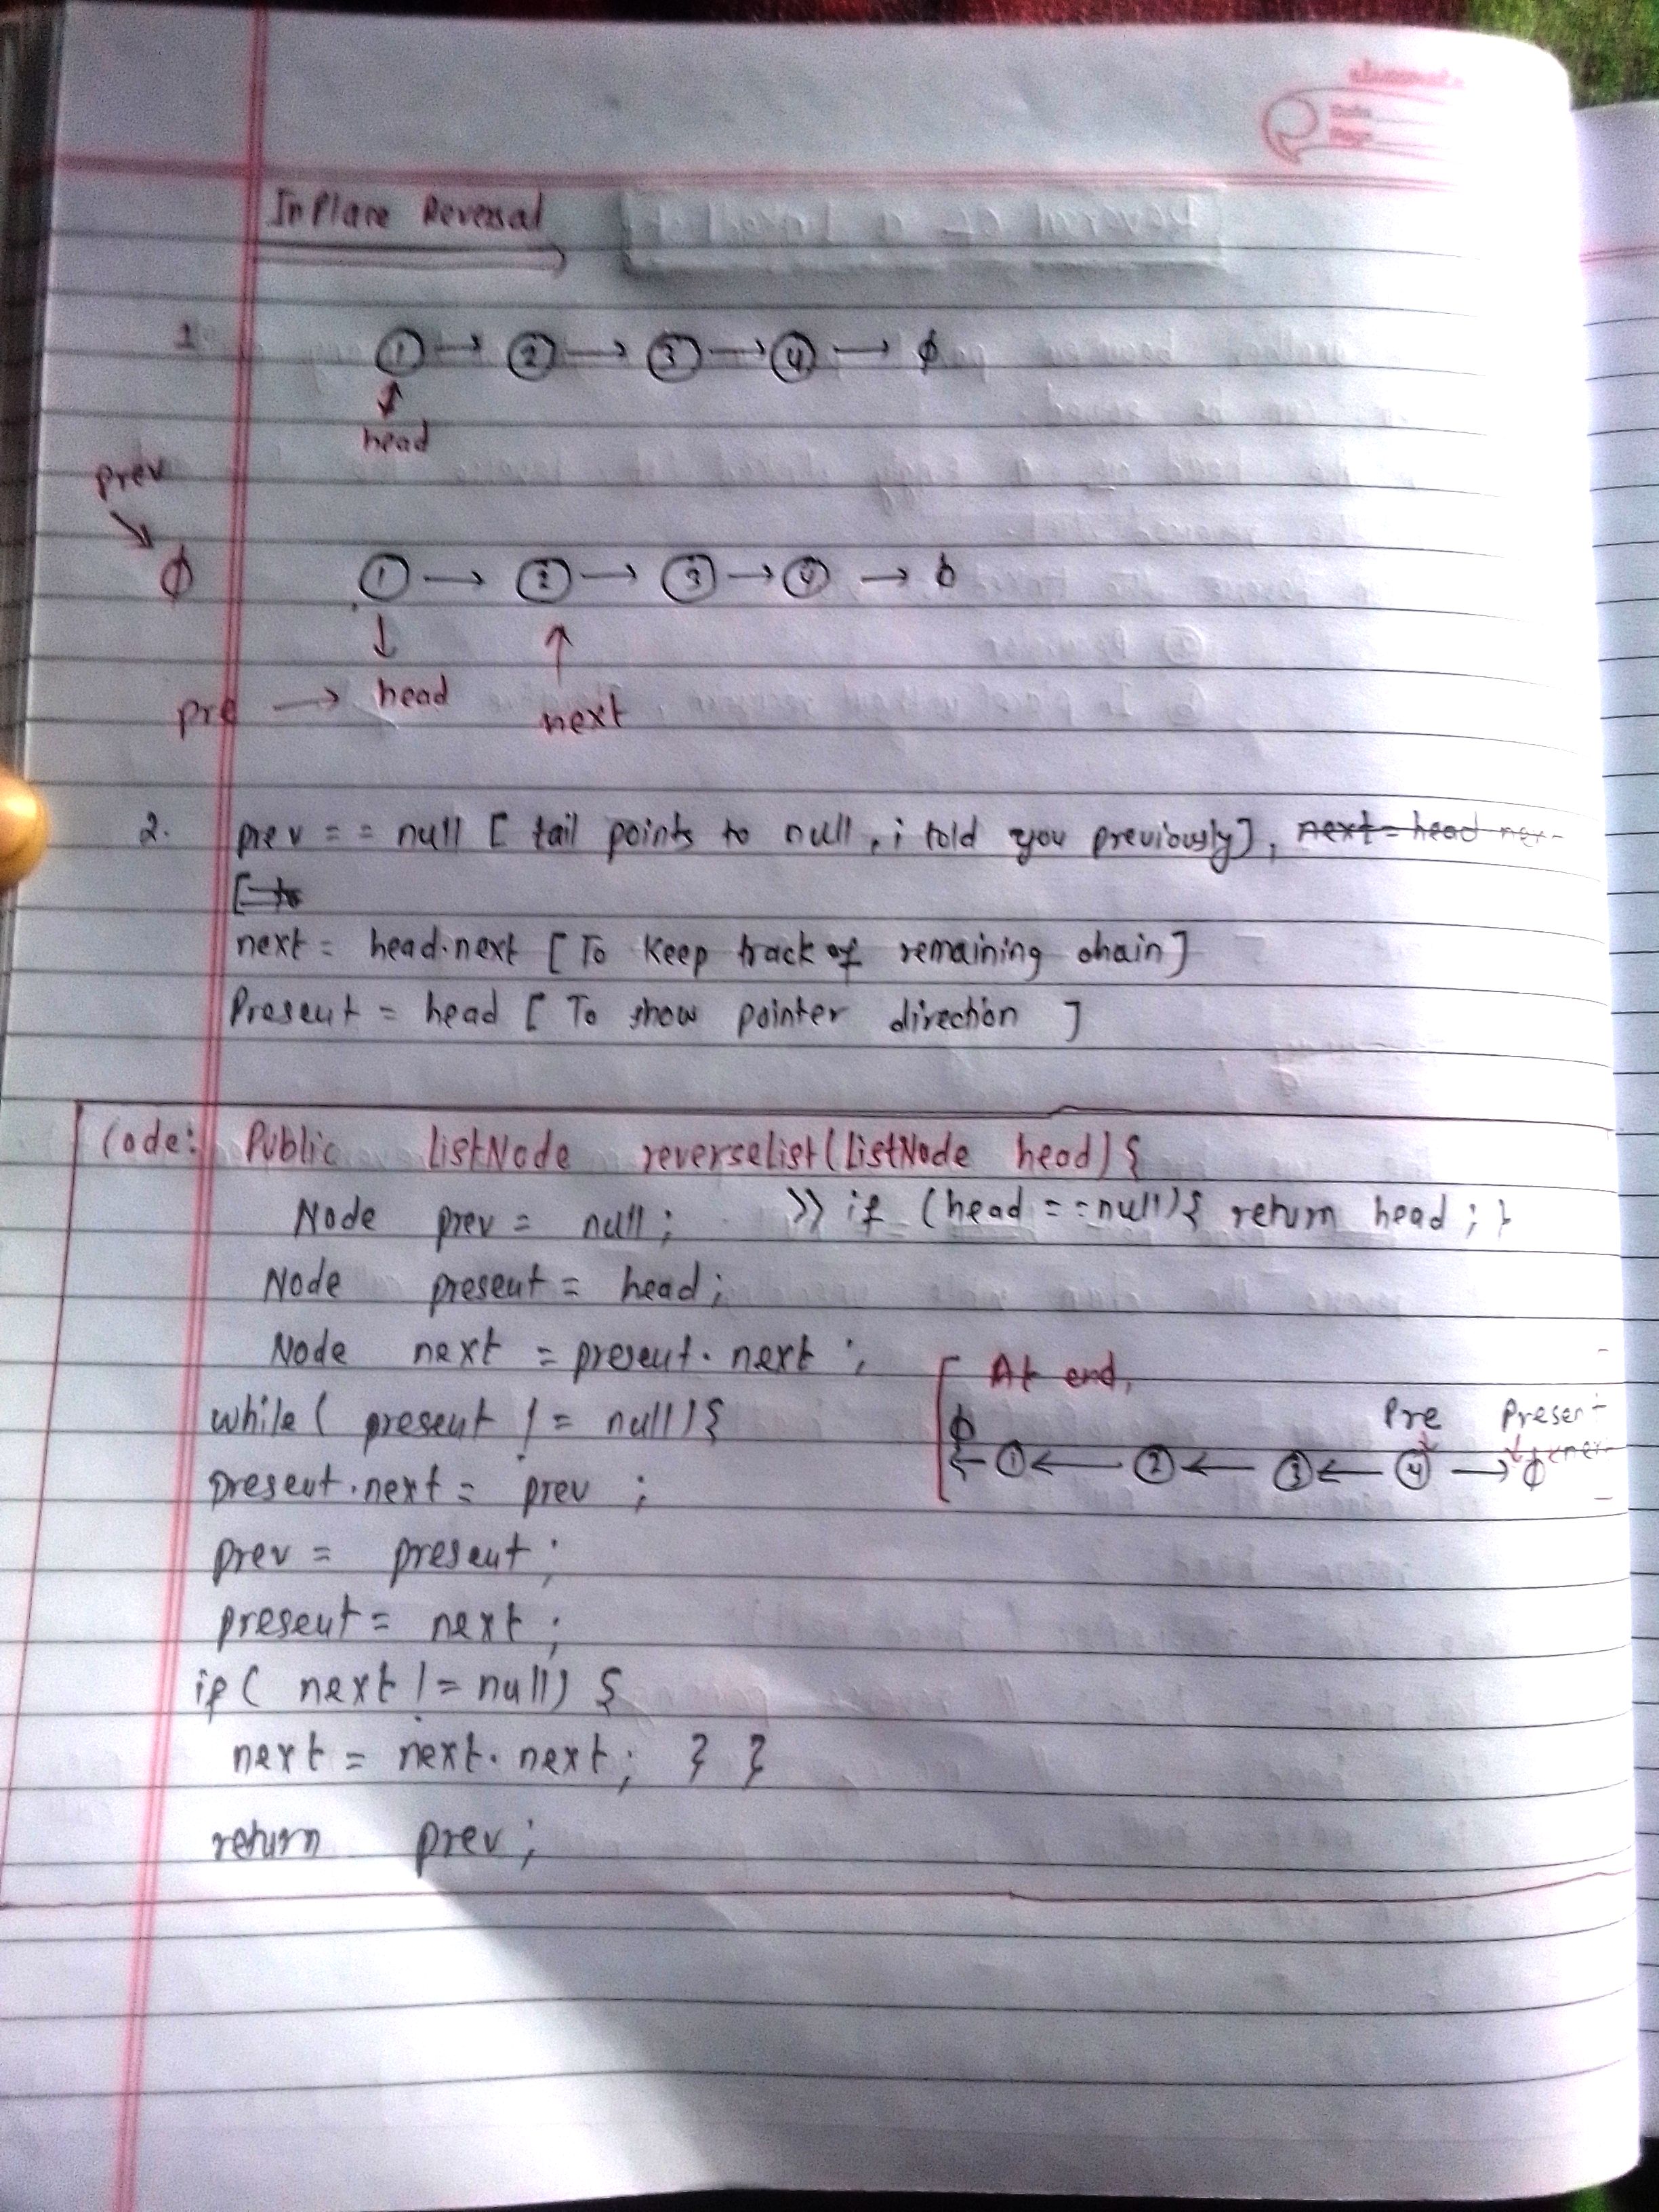 InPlace Reversal
1. 1 → 2 → 3 → 4 → ϕ
head
prev
ϕ 1 → 2 → 3 → 4 → ϕ
pre → head next
2. prev == null [ tail points to null, i told you previously], next = head nex
[ to
next = head.next [ To keep track of remaining chain]
Present = head [ To show pointer direction ]
Code: Public listNode reverselist(listNode head){
Node prev = null; >> if (head == null){ return head; }
Node present = head;
Node next = present.next; [ At end,
while( present != null){ ϕ Pre Present
present.next = prev ; ← 1 ← 2 ← 3 ← 4 → ϕ
prev = present;
present = next;
if( next != null) {
next = next.next; } }
return prev;